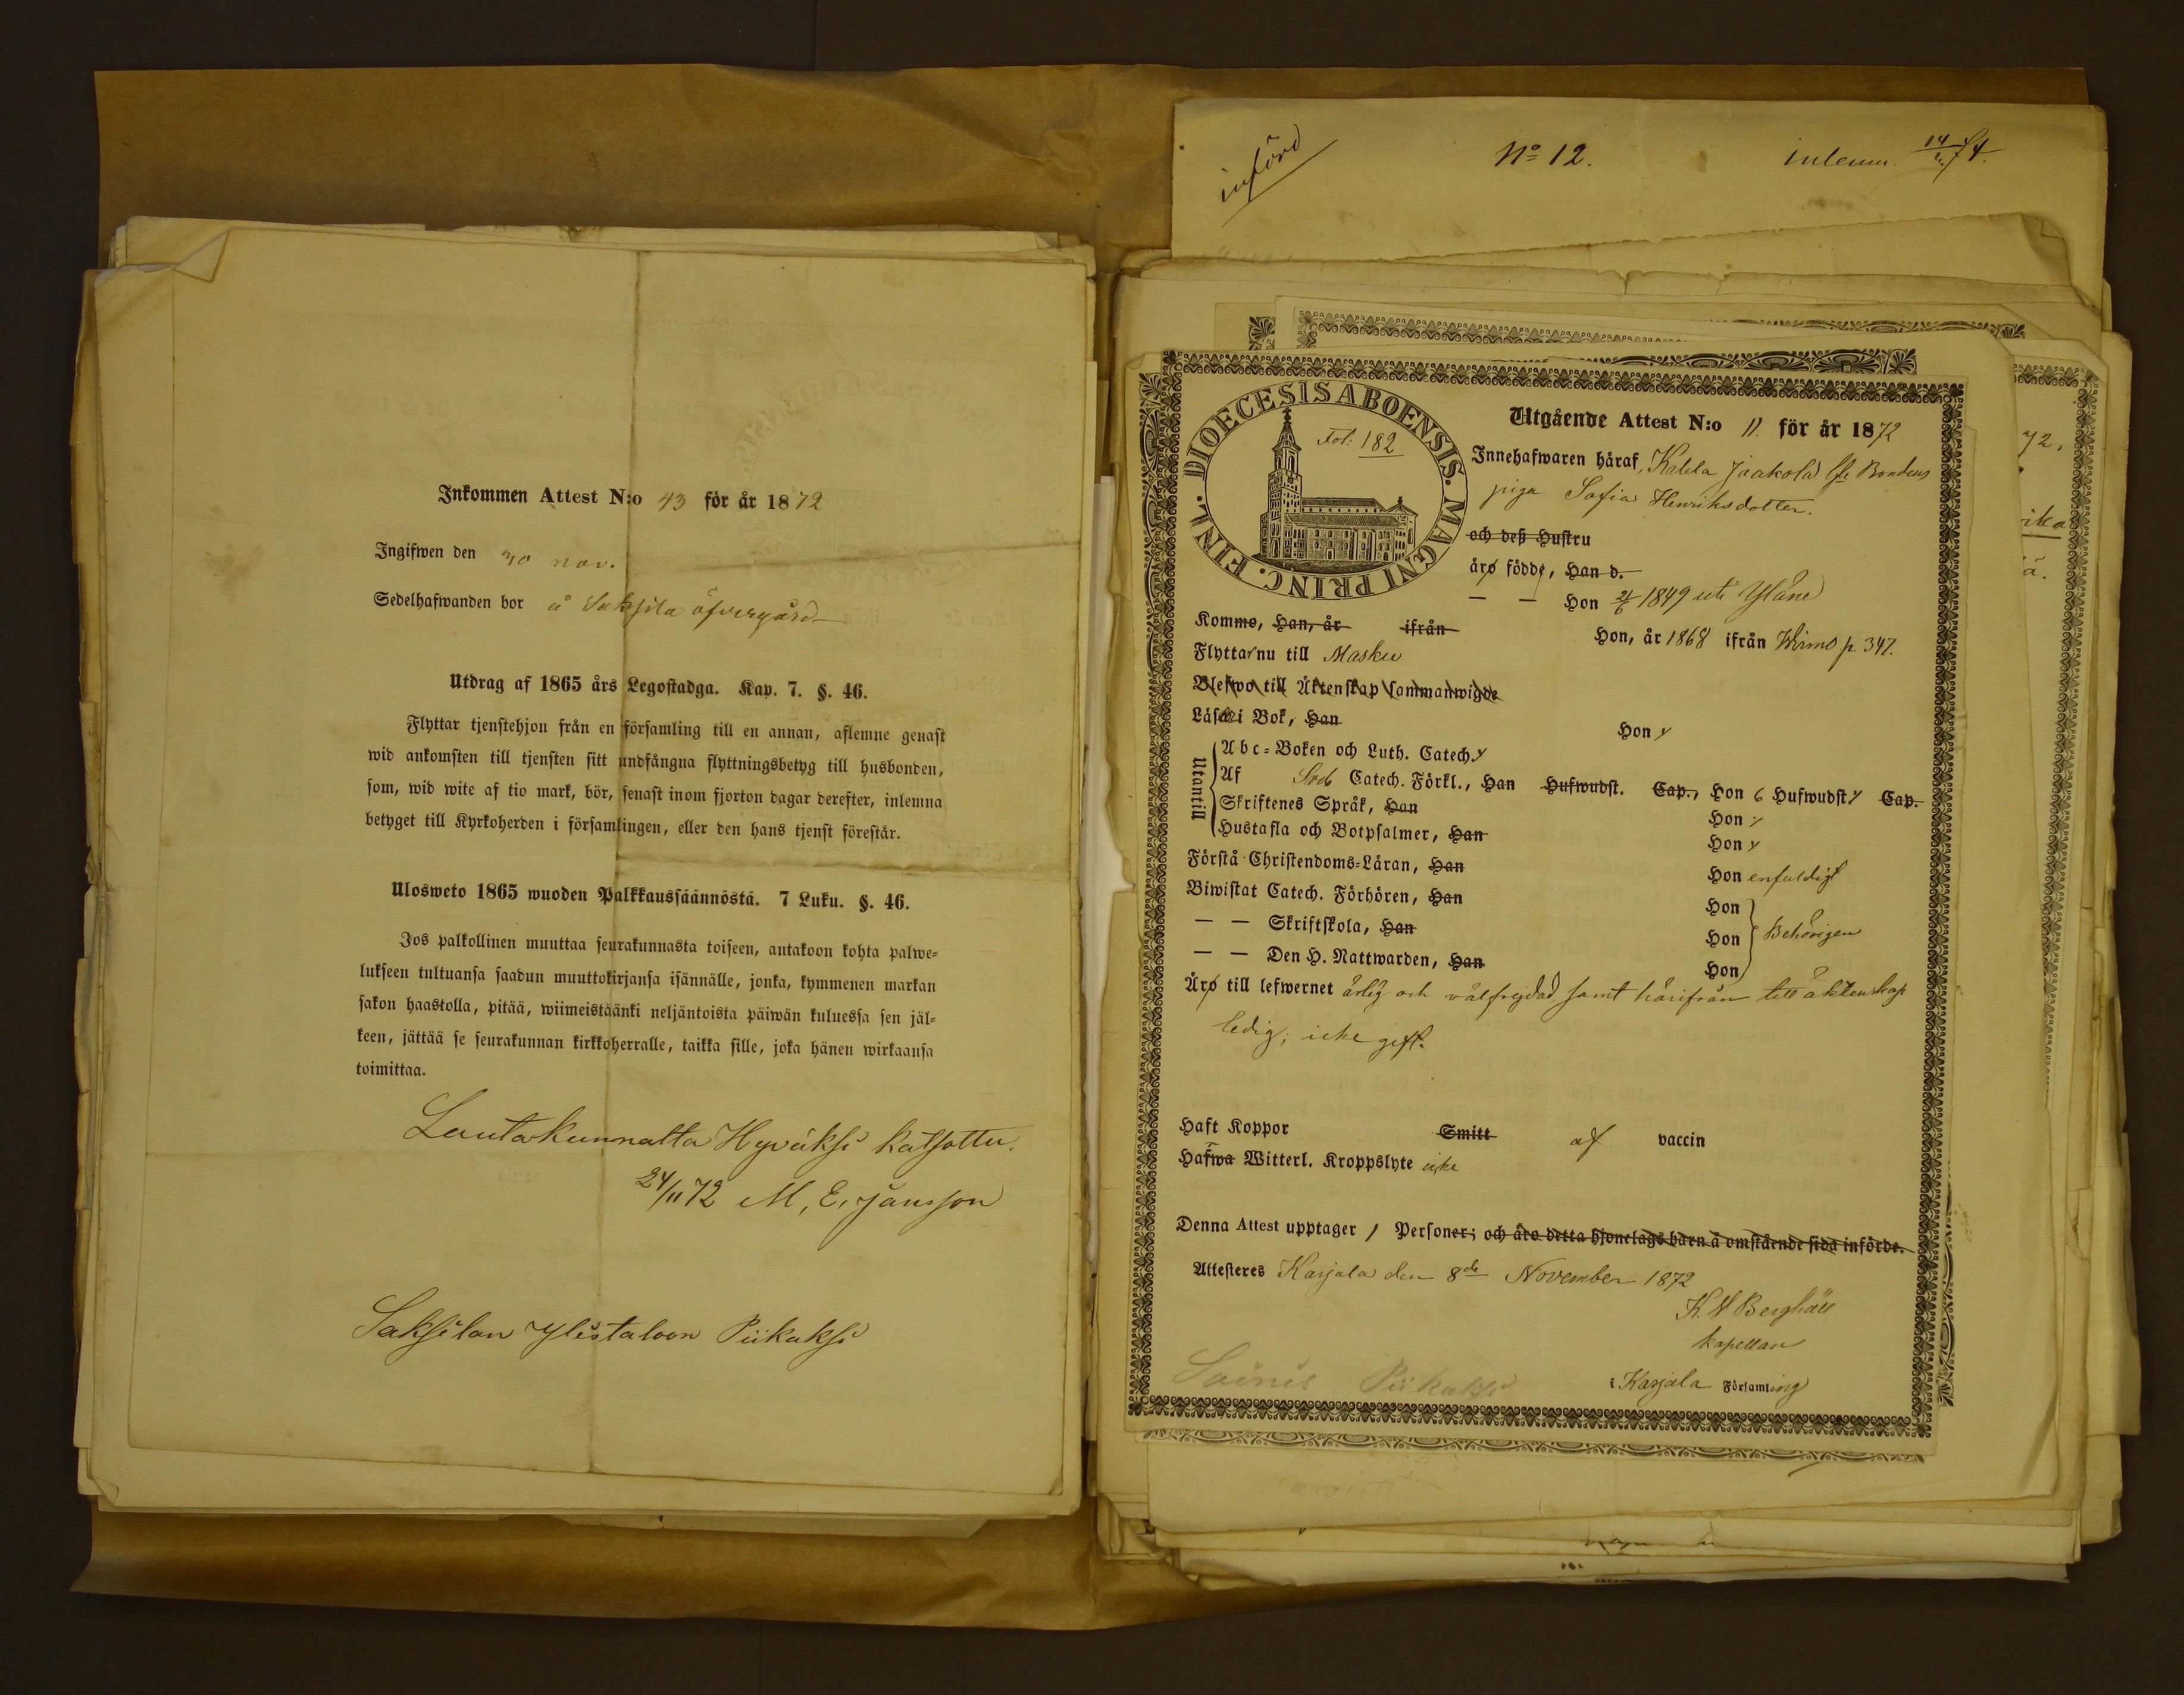 Inkommen Attest N:o 43 för år 1872
Ingifwen den 30 nov.
Sedelhafwanden bor å Saksila öfvergård
Utdrag af 1865 års Legostadga. Kap. 7. §. 46.
Flyttar tjenstehjon från en församling till en annan, aflemne genast
wid ankomsten till tjensten sitt undfångna flyttningsbetyg till husbonden,
som, wid wite af tio mark, bör, senast inom fjorton dagar derefter, inlemna
betyget till Kyrkoherden i församlingen, eller den hans tjenst förestår.
Ulosweto 1865 wuoden Palkkaussäännöstä. 7 Luku. §. 46.
Jos palkollinen muuttaa seurakunnasta toiseen, antakoon kohta palwe-
lukseen tultuansa saadun muuttokirjansa isännälle, jonka, kymmenen markan
sakon haastolla, pitää, wiimeistäänki neljäntoista päiwän kuluessa sen jäl-
keen, jättää se seurakunnan kirkkoherralle, taikka sille, joka hänen wirkaansa
toimittaa.
Lautakunnalta Hyväksi katsottu.
24/11 72 M, E, Jansson
Saksilan Ylistaloon Piikaksi
införd
No 12.
inlemn. 74.
DIOECESIS ABOENSIS. MAGNI PRINC. FINL.
Fol: 182
Utgående Attest N:o 11. för år 1872
Innehafwaren häraf, Kalela Jaakola Bondens
piga Sofia Henriksdotter.
och deß Hustru
äro födde, Han d.
— — Hon 2/6 1849 uti Yläne
Komme, Han, år ifrån Hon, år 1868 ifrån Wirmo p. 347.
Flytta nu till Masku
Blefwo till Äktenskap sammanwigde
Läsa i Bok, Han Hon
Utantill
Abc-Boken och Luth. Catech.
Af Sveb Catech. Förkl., Han Hufwudst. Cap., Hon 6 Hufwudst. Cap.
Skriftenes Språk, Han Hon
Hustafla och Botpsalmer, Han Hon
Förstå Christendoms-Läran, Han Hon enfaldigt
Biwistat Catech. Förhören, Han Hon
— — Skriftskola, Han Hon Behörigen
— — Den H. Nattwarden, Han Hon
Äro till lefwernet ärlig och välfrejdad samt härifrån till äktenskap
ledig; icke gift.
Haft Koppor Smitt af vaccin
Hafwa Witterl. Kroppslyte icke
Denna Attest upptager 1 Personer; och äro detta hjonelags barn å omstående sida införde.
Attesteres Karjala den 8de November 1872
K. W Berghäll
kapellan
i Karjala Församling
Soinis Piikaksi
72.